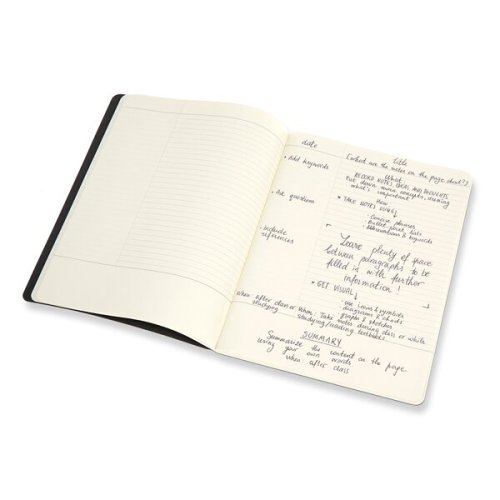 date
title
[what are the notes on the page about?]
• Add keywords
What:
RECORD NOTES, IDEAS AND THOUGHTS
Put down main concepts, drawing
what's important
• Ask questions
How
• TAKE NOTES USING
· Concise phrases
· Bullet point lists
· Abbreviations & keywords
• Include
references
Leave plenty of space
between paragraphs to be
filled in with further
information!
• GET VISUAL
· Use icons & symbols
· diagrams & charts
· graphs & sketches
When: after class or when
studying
When: Take notes during class or while
studying/reading textbooks
SUMMARY
Summarize the content on the page
using your own words
when: after class